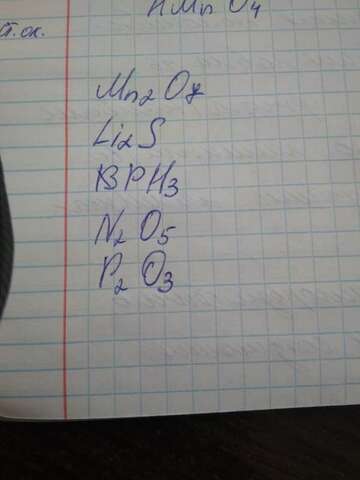 HMnO4
ст.ок.
Mn2O7
Li2S
PH3
N2O5
P2O3